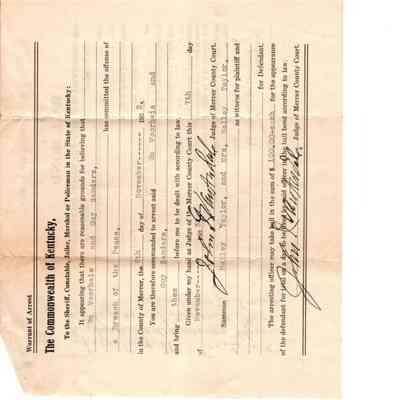 Warrant of Arrest
The Commonwealth of Kentucky,
To the Sheriff, Constable, Jailer, Marshal or Policeman in the State of Kentucky:
It appearing that there are reasonable grounds for believing that
Voorheis and Guy Sanders,
has committed the offense of
a Breach of the Peace,
in the County of Mercer, the day of November-----
You are therefore commanded to arrest said Voorheis and
Guy Sanders,
and bring them before me to be dealt with according to law.
Given under my hand as Judge of the Mercer County Court this 7th day
of November-----
Judge of Mercer County Court.
Summons Bailey Taylor, and Mrs. Bailey Taylor,
as witness for plaintiff and
for Defendant.
The arresting officer may take bail in the sum of $ 100.00-each for the appearance
of the defendant for trial on a day to be in the bail bond according to law.
Judge of Mercer County Court.